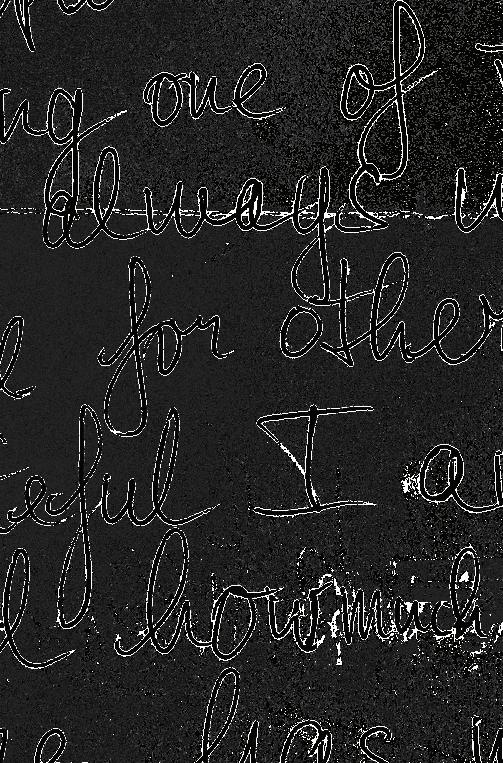 ng one of
always
for other
eful I a
how much
has